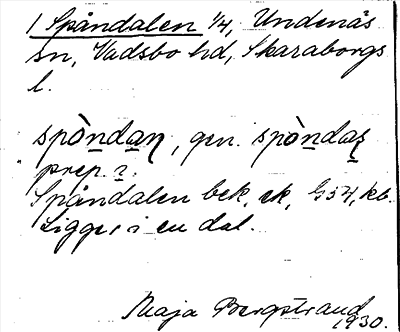 1 Spåndalen 1/4, Undenäs
sn, Vadsbo hd, Skaraborgs
l.
spòndaɳ, gen. spòndaʂ
prep. i.
Spåndalen bek. ek, G54, kb.
Ligger i en dal.
Maja Bergstrand
1930.